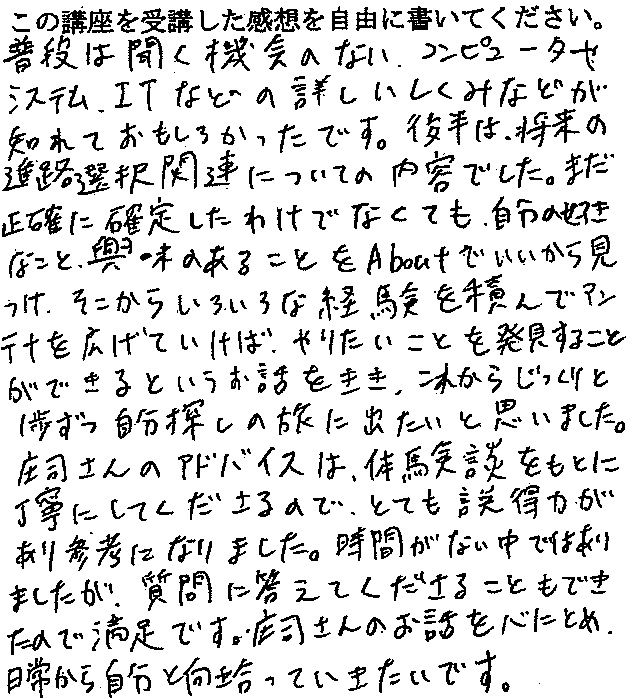 この講座を受講した感想を自由に書いてください。
普段は聞く機会のない、コンピューターや
システム、ITなどの詳しいしくみなどが
知れておもしろかったです。後半は、将来の
進路選択関連についての内容でした。まだ
正確に確定したわけでなくても、自分の好き
なこと、興味のあることをAboutでいいから見
つけ、そこからいろいろな経験を積んでアン
テナを広げていけば、やりたいことを発見すること
ができるというお話をきき、これからじっくりと
1歩ずつ自分探しの旅に出たいと思いました。
庄司さんのアドバイスは、体験談をもとに
丁寧にしてくださるので、とても説得力が
あり参考になりました。時間がない中ではあり
ましたが、質問に答えてくださることもでき
たので満足です。庄司さんのお話を心にとめ、
日常から自分と向き合っていきたいです。